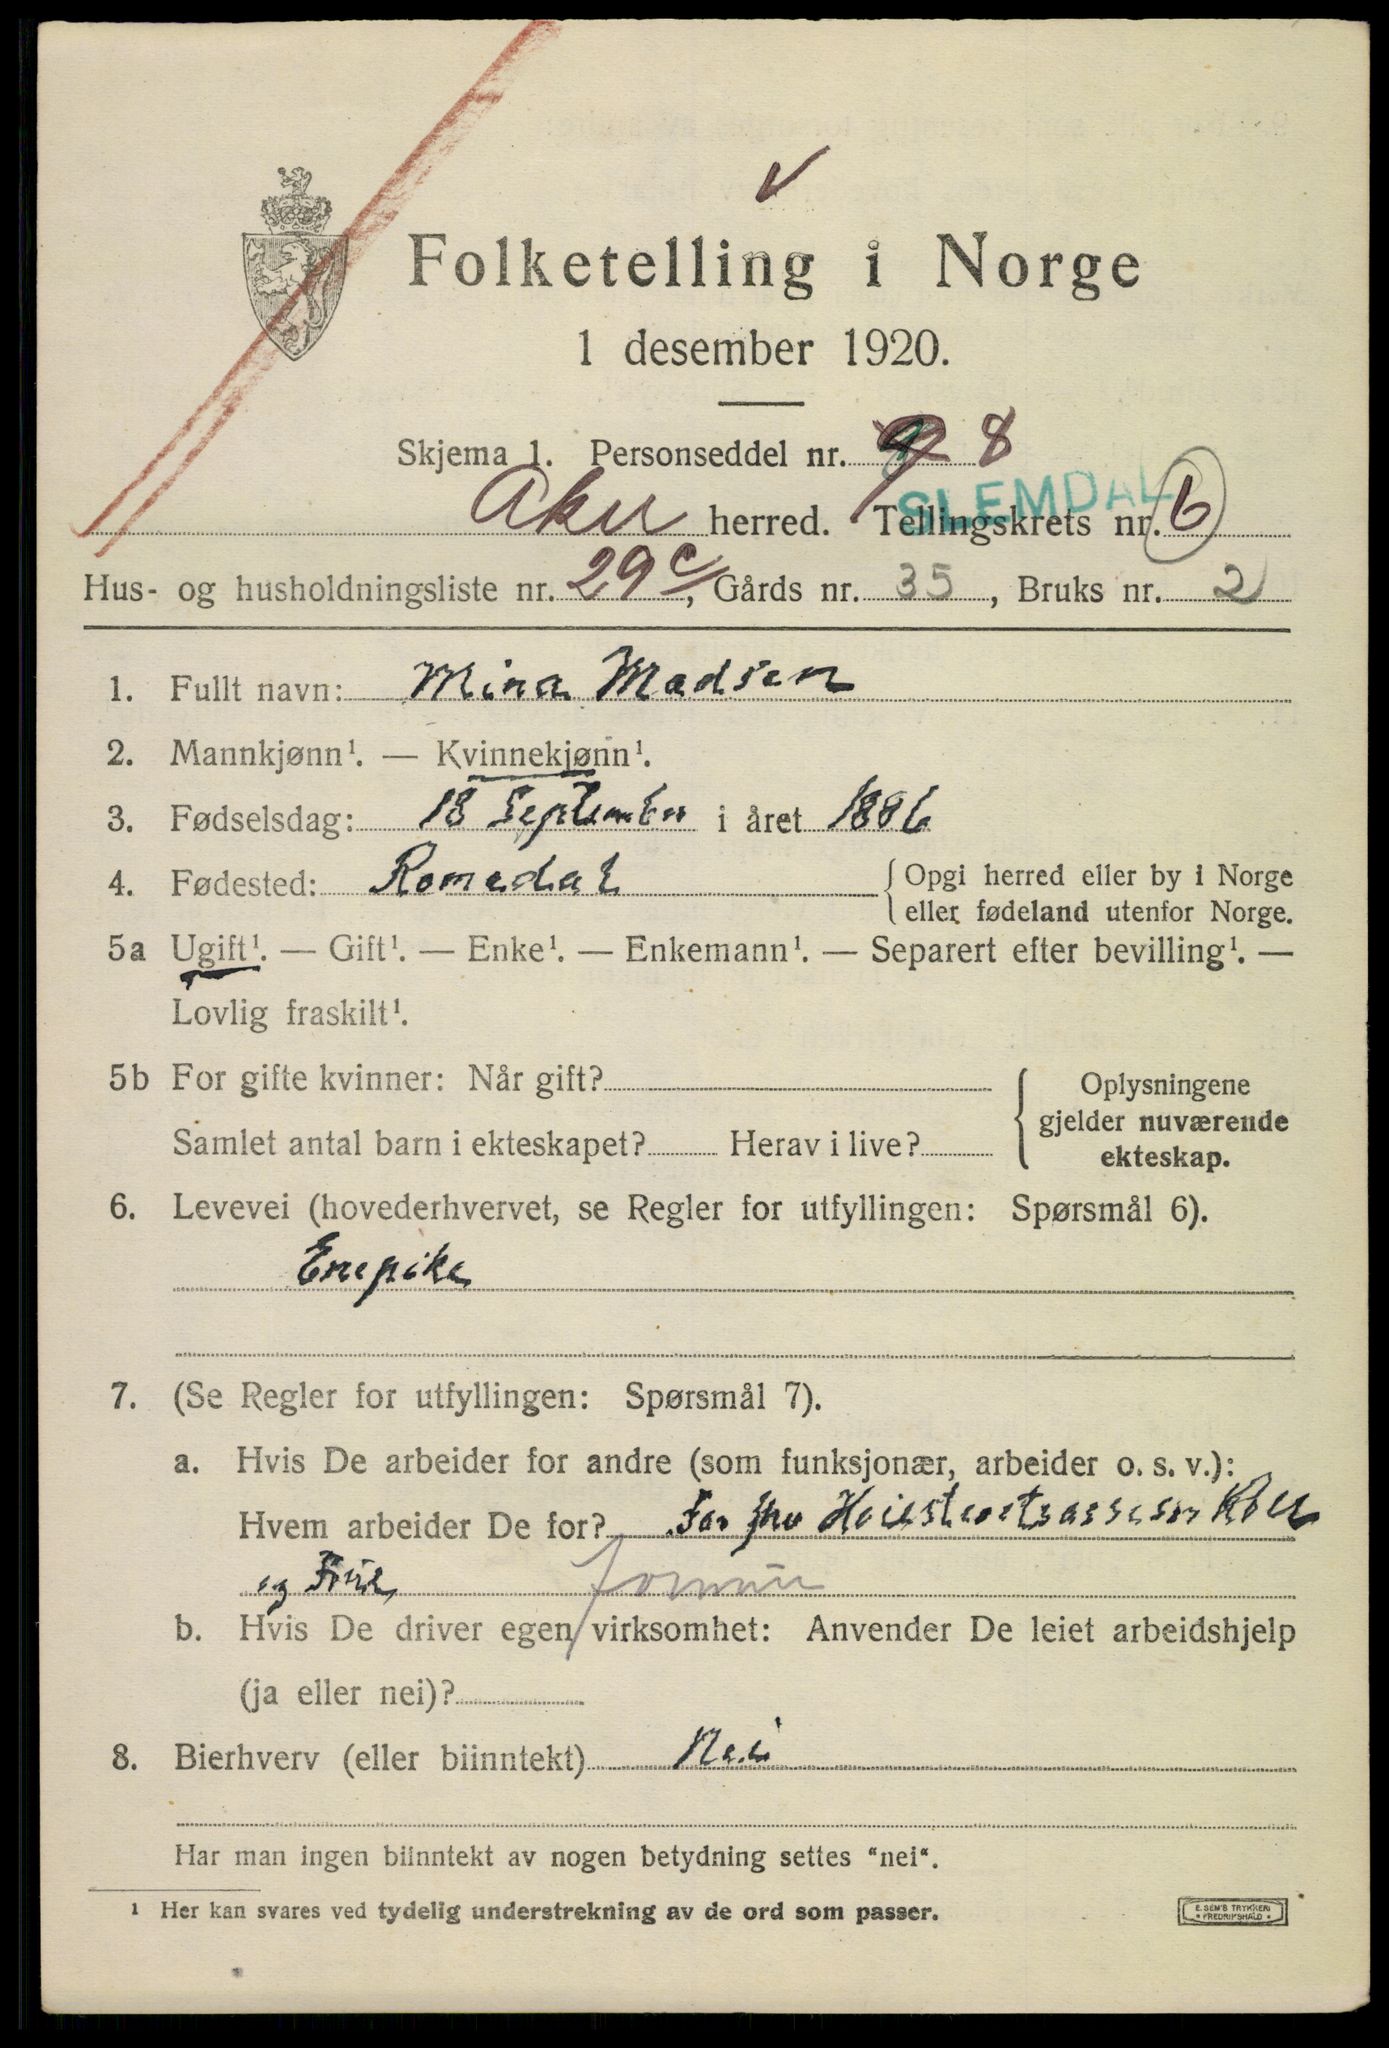 Folketelling i Norge
1 desember 1920.
Skjema 1. Personseddel nr. 8
SLEMDAL
Aker herred. Tellingskrets nr. 6
Hus- og husholdningsliste nr. 29c, Gårds nr. 35, Bruks nr. 2
1. Fullt navn: Mina Madsen
2. Mannkjønn¹. — Kvinnekjønn¹.
3. Fødselsdag: 18 September i året 1886
4. Fødested: Romedal { Opgi herred eller by i Norge
eller fødeland utenfor Norge.
5a Ugift¹. — Gift¹. — Enke¹. — Enkemann¹. — Separert efter bevilling¹. —
Lovlig fraskilt¹.
5b For gifte kvinner: Når gift? { Oplysningene
gjelder nuværende
Samlet antal barn i ekteskapet? Herav i live?
ekteskap.
6. Levevei (hovederhvervet, se Regler for utfyllingen: Spørsmål 6).
Enepike
7. (Se Regler for utfyllingen: Spørsmål 7).
a. Hvis De arbeider for andre (som funksjonær, arbeider o. s. v.):
Hvem arbeider De for? For Høiesteretsassessor
og Frue
b. Hvis De driver egen virksomhet: Anvender De leiet arbeidshjelp
(ja eller nei)?
8. Bierhverv (eller biinntekt) Nei
Har man ingen biinntekt av nogen betydning settes "nei".
¹ Her kan svares ved tydelig understrekning av de ord som passer.
E. SEM'S TRYKKERI
• FREDRIKSHALD •